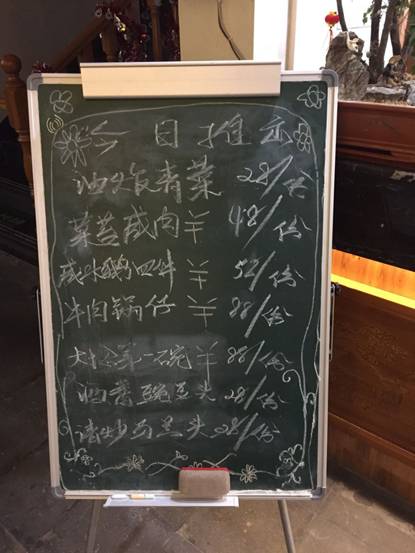 今日推出
油炸青菜 28/份
菜苔咸肉 ¥ 48/份
咸水鹅四件 ¥ 52/份
牛肉锅仔 ¥ 88/份
第一碗 ¥ 88/份
豌豆头 28/份
清炒马兰头 28/份